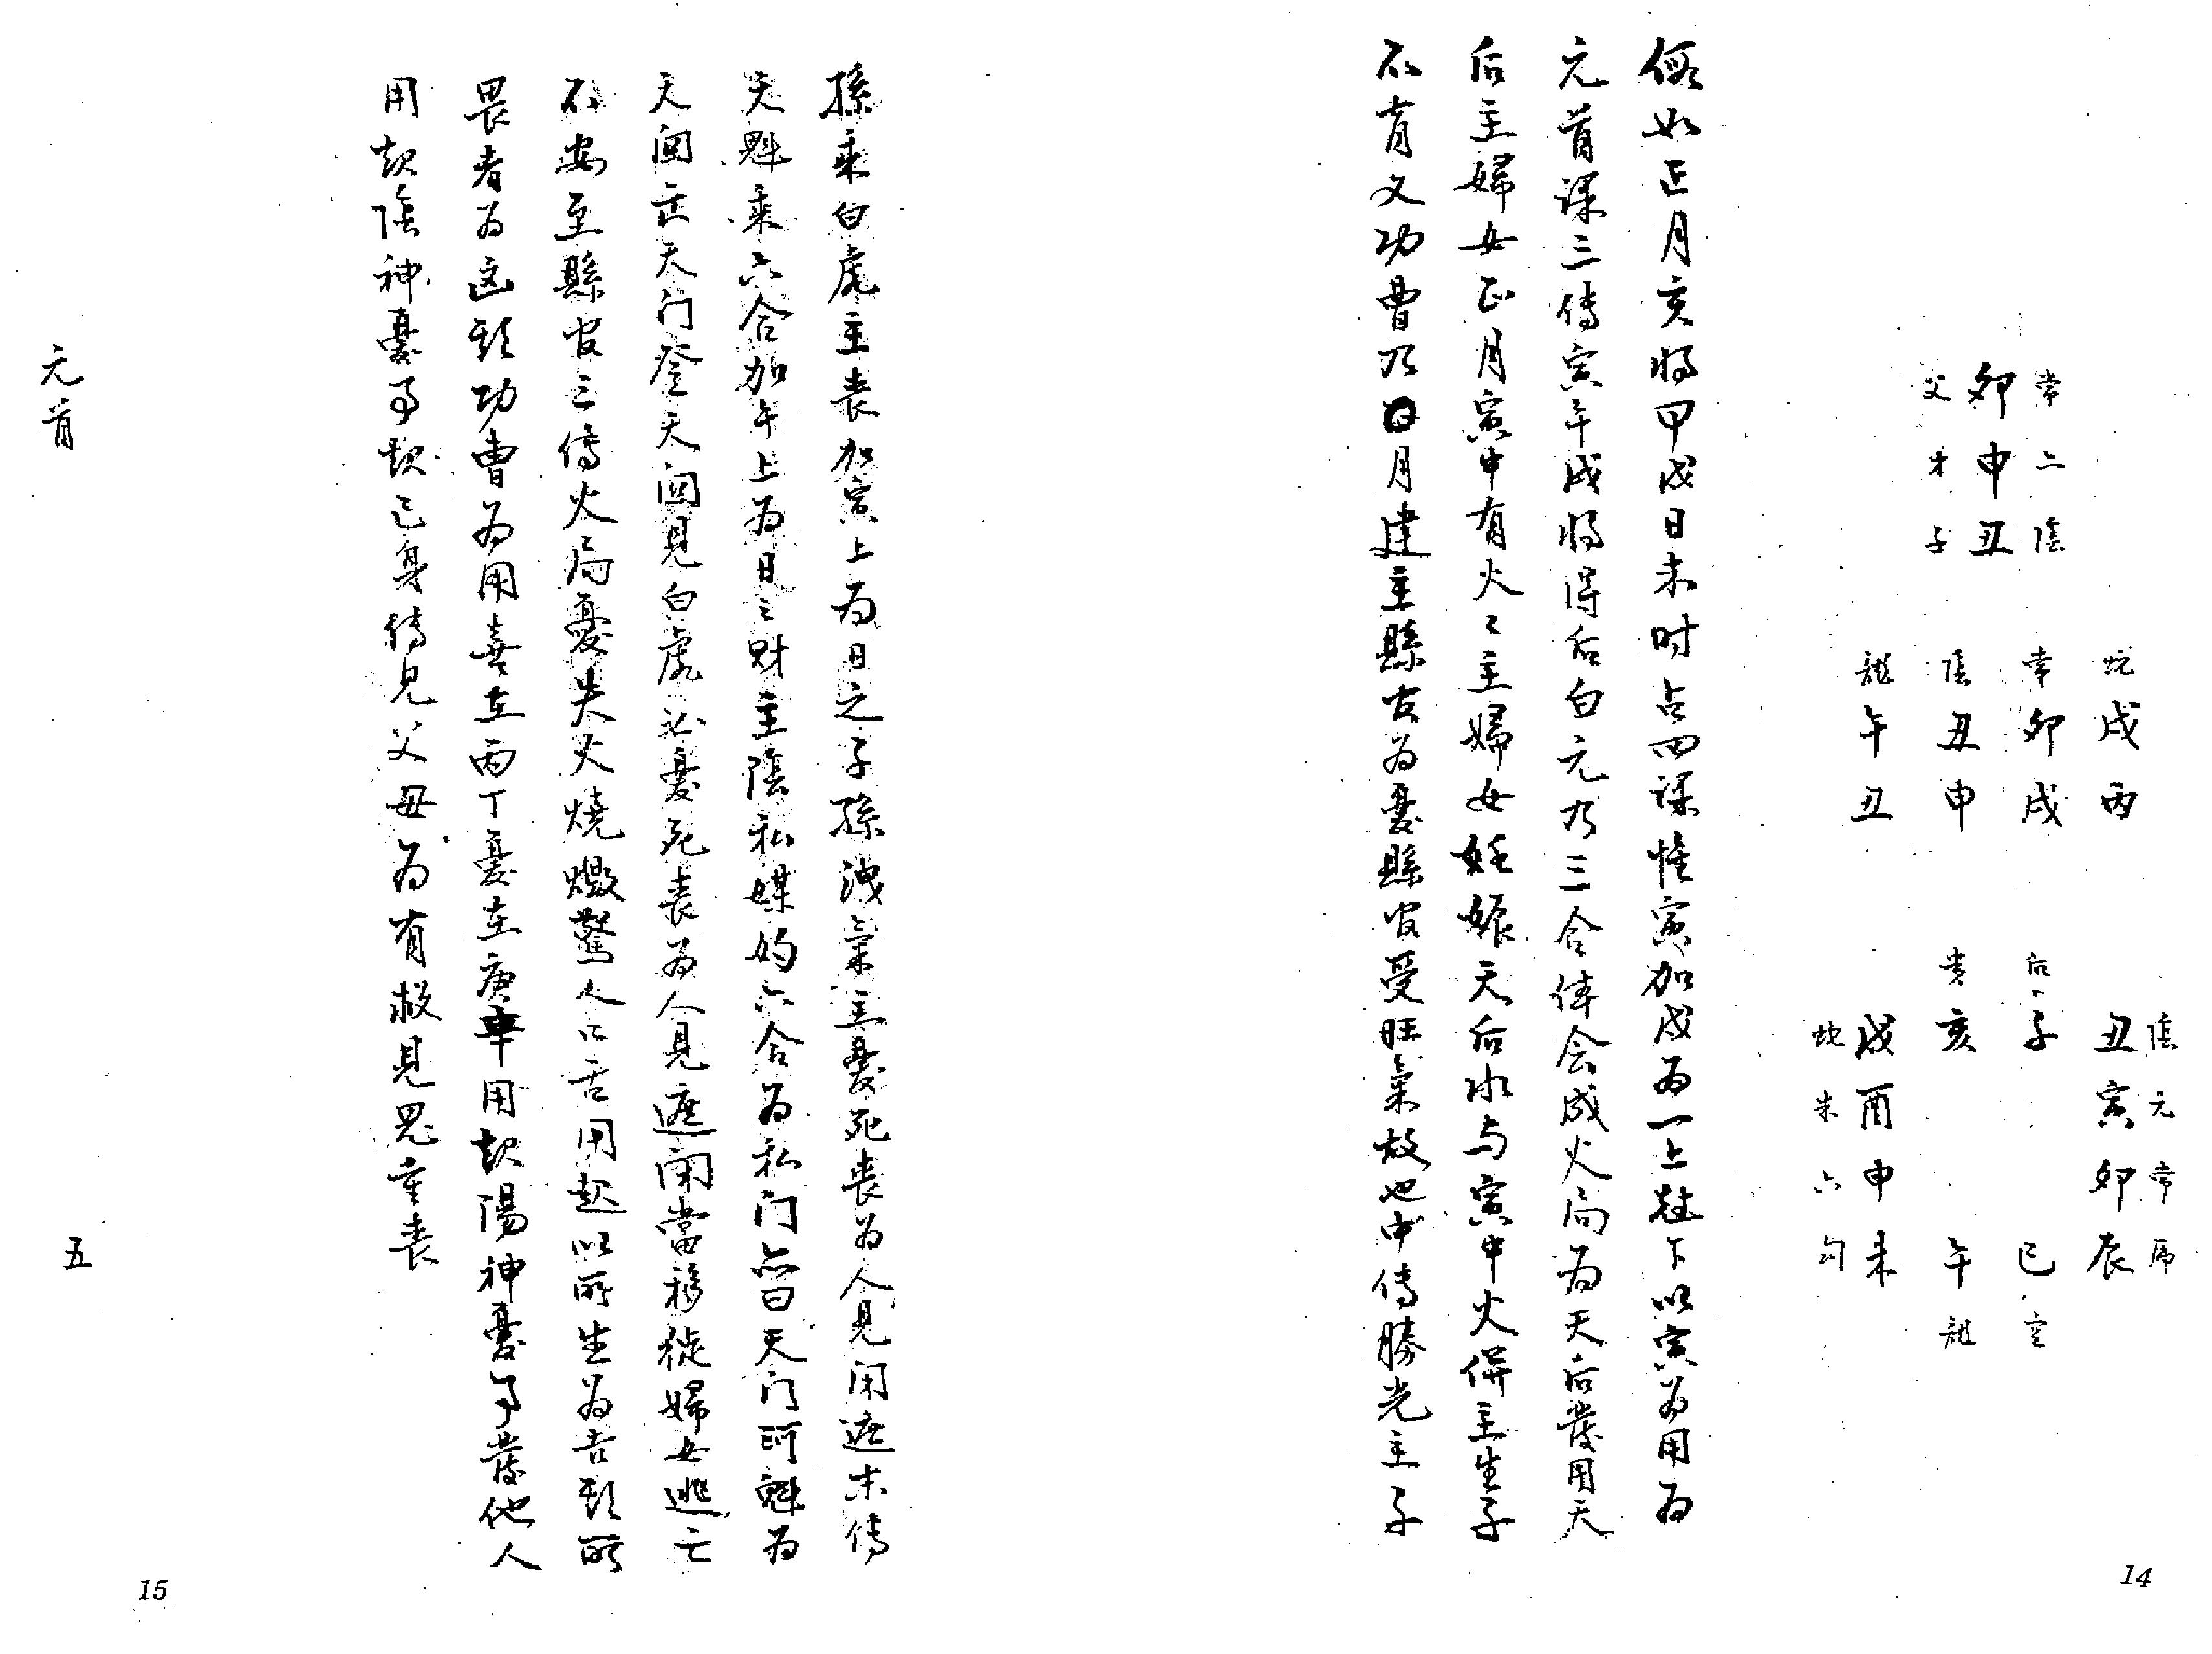 常 二 陰
卯 申 丑
父 才 子
蛇 常 陰 龍
戌 卯 丑 午
丙 戌 申 丑
陰 元 常 虎
丑 寅 卯 辰
后 子 巳 空
貴 亥 午 龍
戌 酉 申 未
蛇 朱 六 勾
假如正月亥將甲戌日未时占四課惟寅加戌为一上尅下以寅为用为
元首課三傳寅午戌將得后白元乃三合体会成火局为天后發用天
后主婦女正月寅中有火〻主婦女妊娠天后水与寅中火併主生子
不育又功曹乃月建主縣官为憂縣官受旺氣故也中傳勝光主子
孫乘白虎主丧加寅上为日之子孫洩氣主憂死丧为人見闭遮末傳
天魁乘六合加午上为日之財主陰私媒妁六合为私门亦曰天门河魁为
天関亡天门登天関見白虎必憂死丧为人見遮闭當移徙婦女逃亡
不安至縣官三傳火局憂失火燒燬驚人口舌用起以所生为吉类所
畏者为凶类功曹为用喜在丙丁憂在庚辛用起陽神憂事發他人
用起陰神憂事起己身傳見父母为有救見鬼重丧
元首
五
14
15